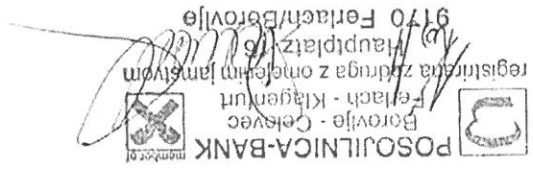 POSOJILNICA-BANK
member of
Borovlje - Celovec
Ferlach - Klagenfurt
registrirana zadruga z omejenim jamstvom
Hauptplatz 16
9170 Ferlach/Borovlje